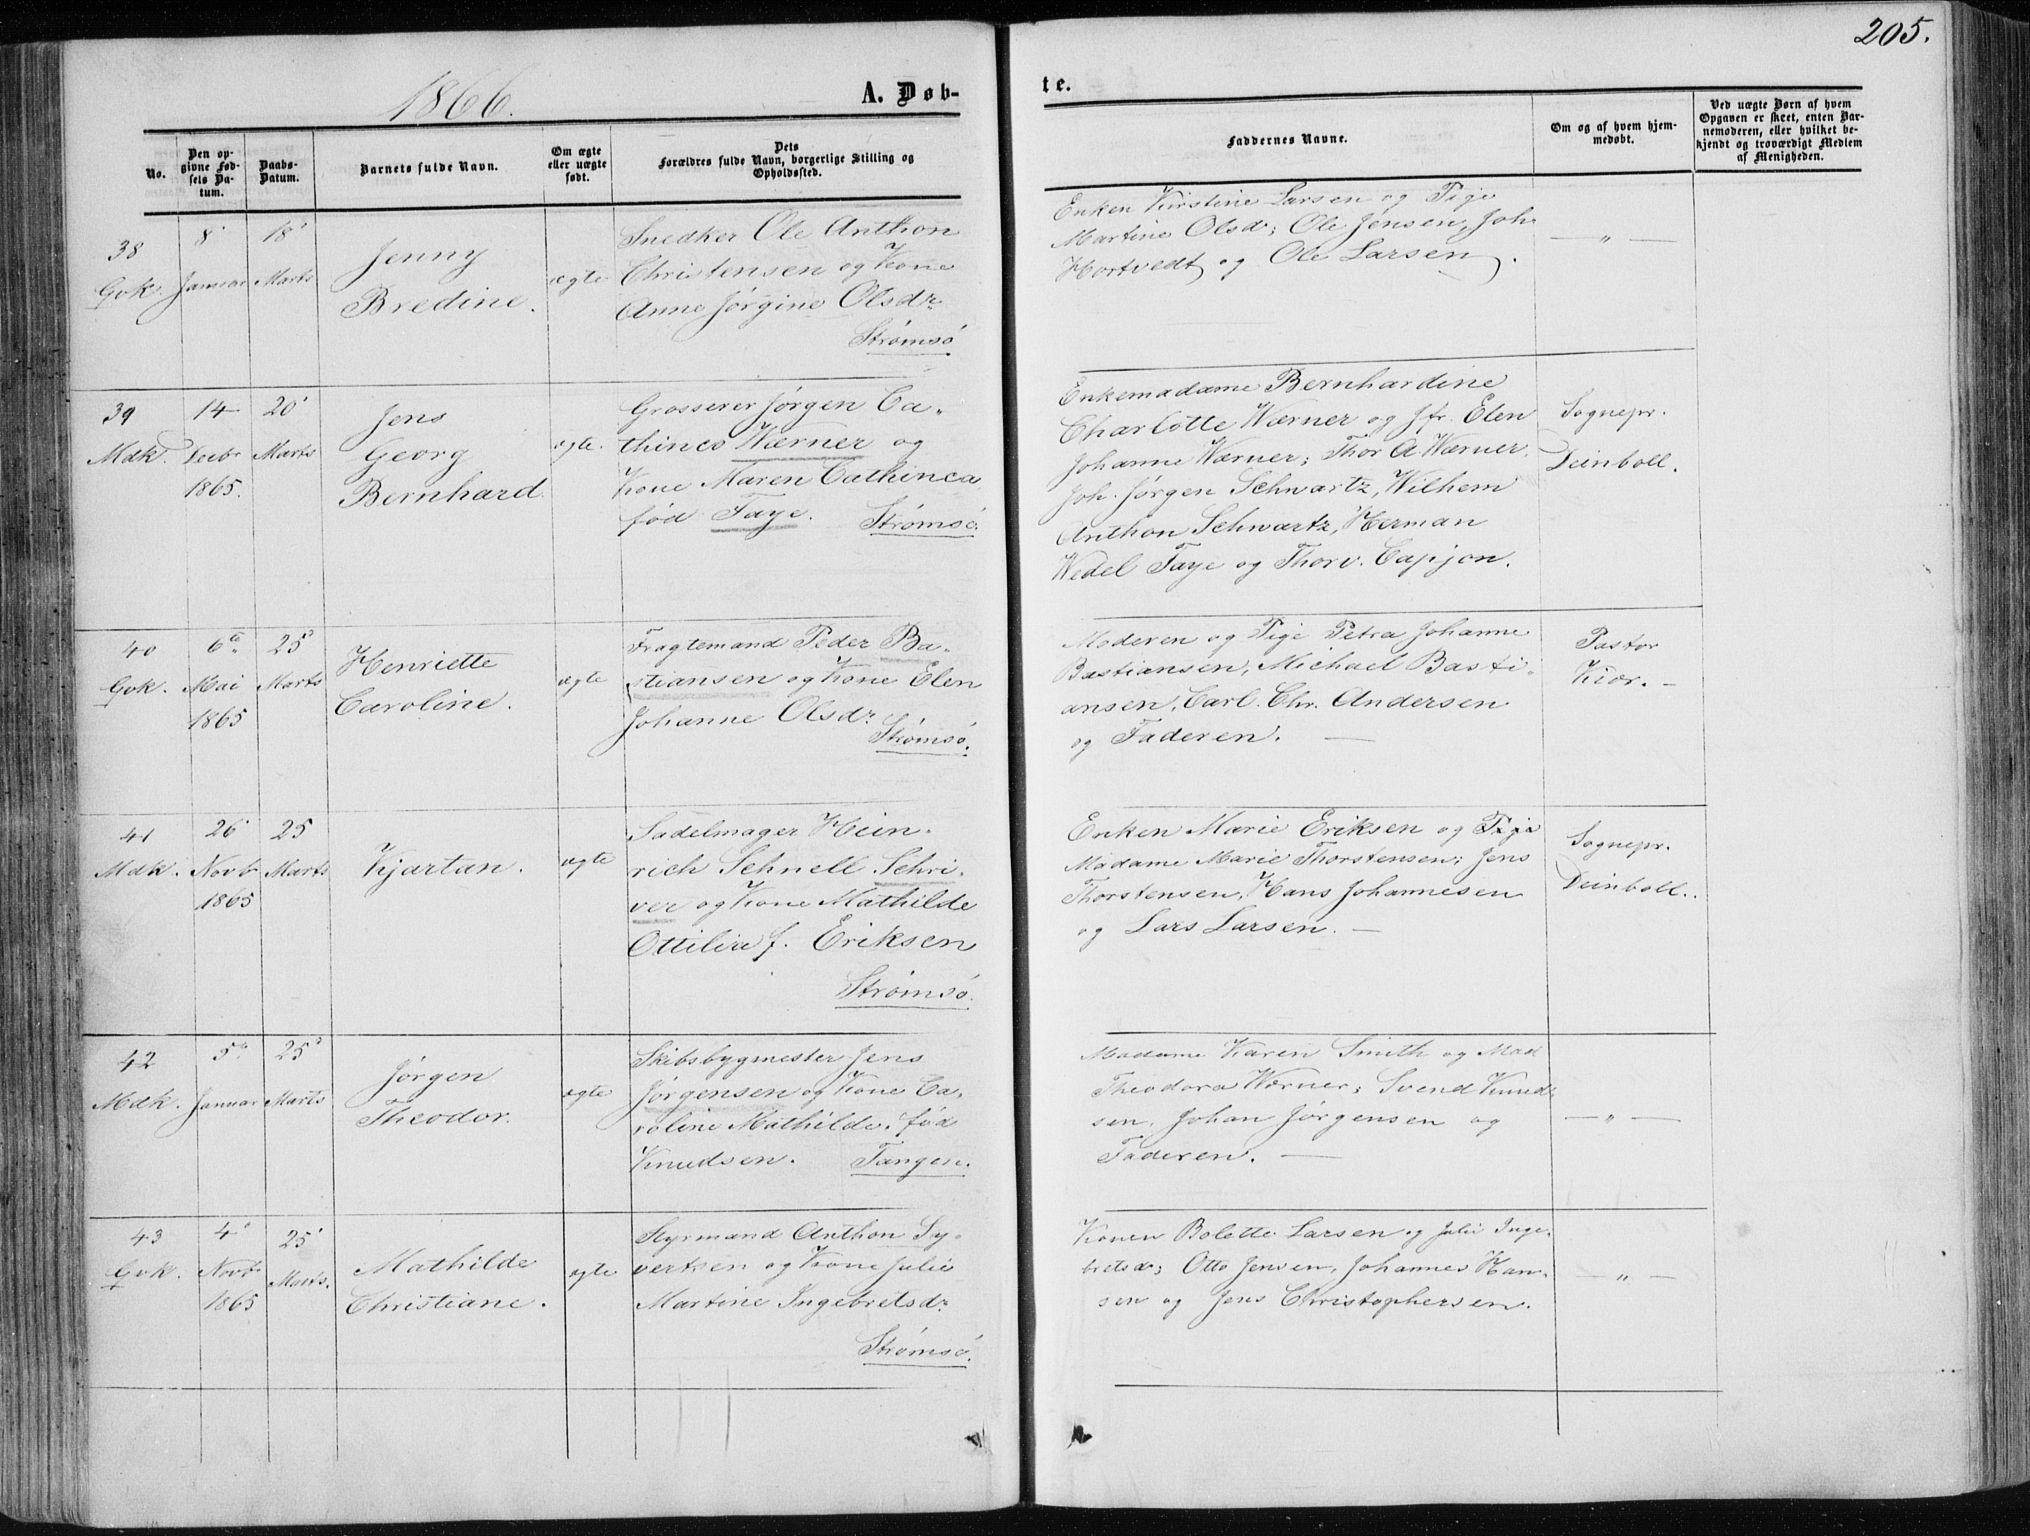 205.
1866.
A. Døb-
te.
No.
Den op-
givne Fød-
sels Da-
tum.
Daabs-
Datum.
Barnets fulde Navn.
Om ægte
eller uægte
født.
Dets
Forældres fulde Navn, borgerlige Stilling og
Opholdssted.
Faddernes Navne.
Om og af hvem hjem-
medøbt.
Ved uægte Børn af hvem
Opgaven er skeet, enten Bar-
nemoderen, eller hvilket be-
kjendt og troværdigt Medlem
af Menigheden.
38
Gvk.
8'
Januar
18'
Marts
Jenny
Bredine.
ægte
Snedker Ole Anthon
Christensen og Kone
Anne Jørgine Olsdr.
Strømsø
Enken Kirstine Larsen og Pige
Martine Olsd; Ole Jensen, Joh.
Hortvedt og Ole Larsen.
— „ —
39
Mdk.
14
Decbr
1865.
20'
Marts
Jens
Georg
Bernhard
ægte.
Grosserer Jørgen Ca-
thinco Wærner og
Kone Maren Cathinca
fød Faye. Strømsø.
Enkemadame Bernhardine
Charlotte Wærner og Jfr. Elen
Johanne Wærner; Thor A. Wærner.
Joh. Jørgen Schwartz, Wilhem
Anthon Schwartz, Herman
Wedel Faye og Thorv. Capjon.
Sognepr.
Deinboll.
40
Gvk.
6te
Mai
1865
25'
Marts
Henriette
Caroline.
ægte
Fragtemand Peder Ba-
stiansen og Kone Elen
Johanne Olsdr.
Strømsø.
Moderen og Pige Petra Johanne
Bastiansen, Michael Basti-
ansen, Carl. Chr. Andersen
og Faderen. —
Pastor
Kiør. —
41
Mdk.
26'
Novbr
1865
25
Marts
Kjartan.
ægte
Sadelmager Hein-
rich Schnell Schri-
ver og Kone Mathilde
Ottilia f. Eriksen
Strømsø.
Enken Marie Eriksen og Pige
Madame Marie Thorstensen; Jens
Thorstensen, Hans Johannesen
og Lars Larsen. —
Sognepr.
Deinboll.
42
Mdk.
5te
Januar
25'
Marts
Jørgen
Theodor.
ægte
Skibsbygmester Jens
Jørgensen og Kone Ca-
roline Mathilde, fød
Knudsen. Tangen.
Madame Karen Smith og Mad
Theodora Wærner; Svend Knud-
sen, Johan Jørgensen og
Faderen. —
— „ —
43
Gvk.
4'
Novbr
1865
25'
Marts.
Mathilde
Christiane.
ægte
Styrmand Anthon Sy-
vertsen og Kone Julie
Martine Ingebretsdr.
Strømsø.
Konen Bolette Larsen og Julie Inge-
bretsdr; Otto Jensen, Johannes Han-
sen og Jens Christophersen.
— „ —